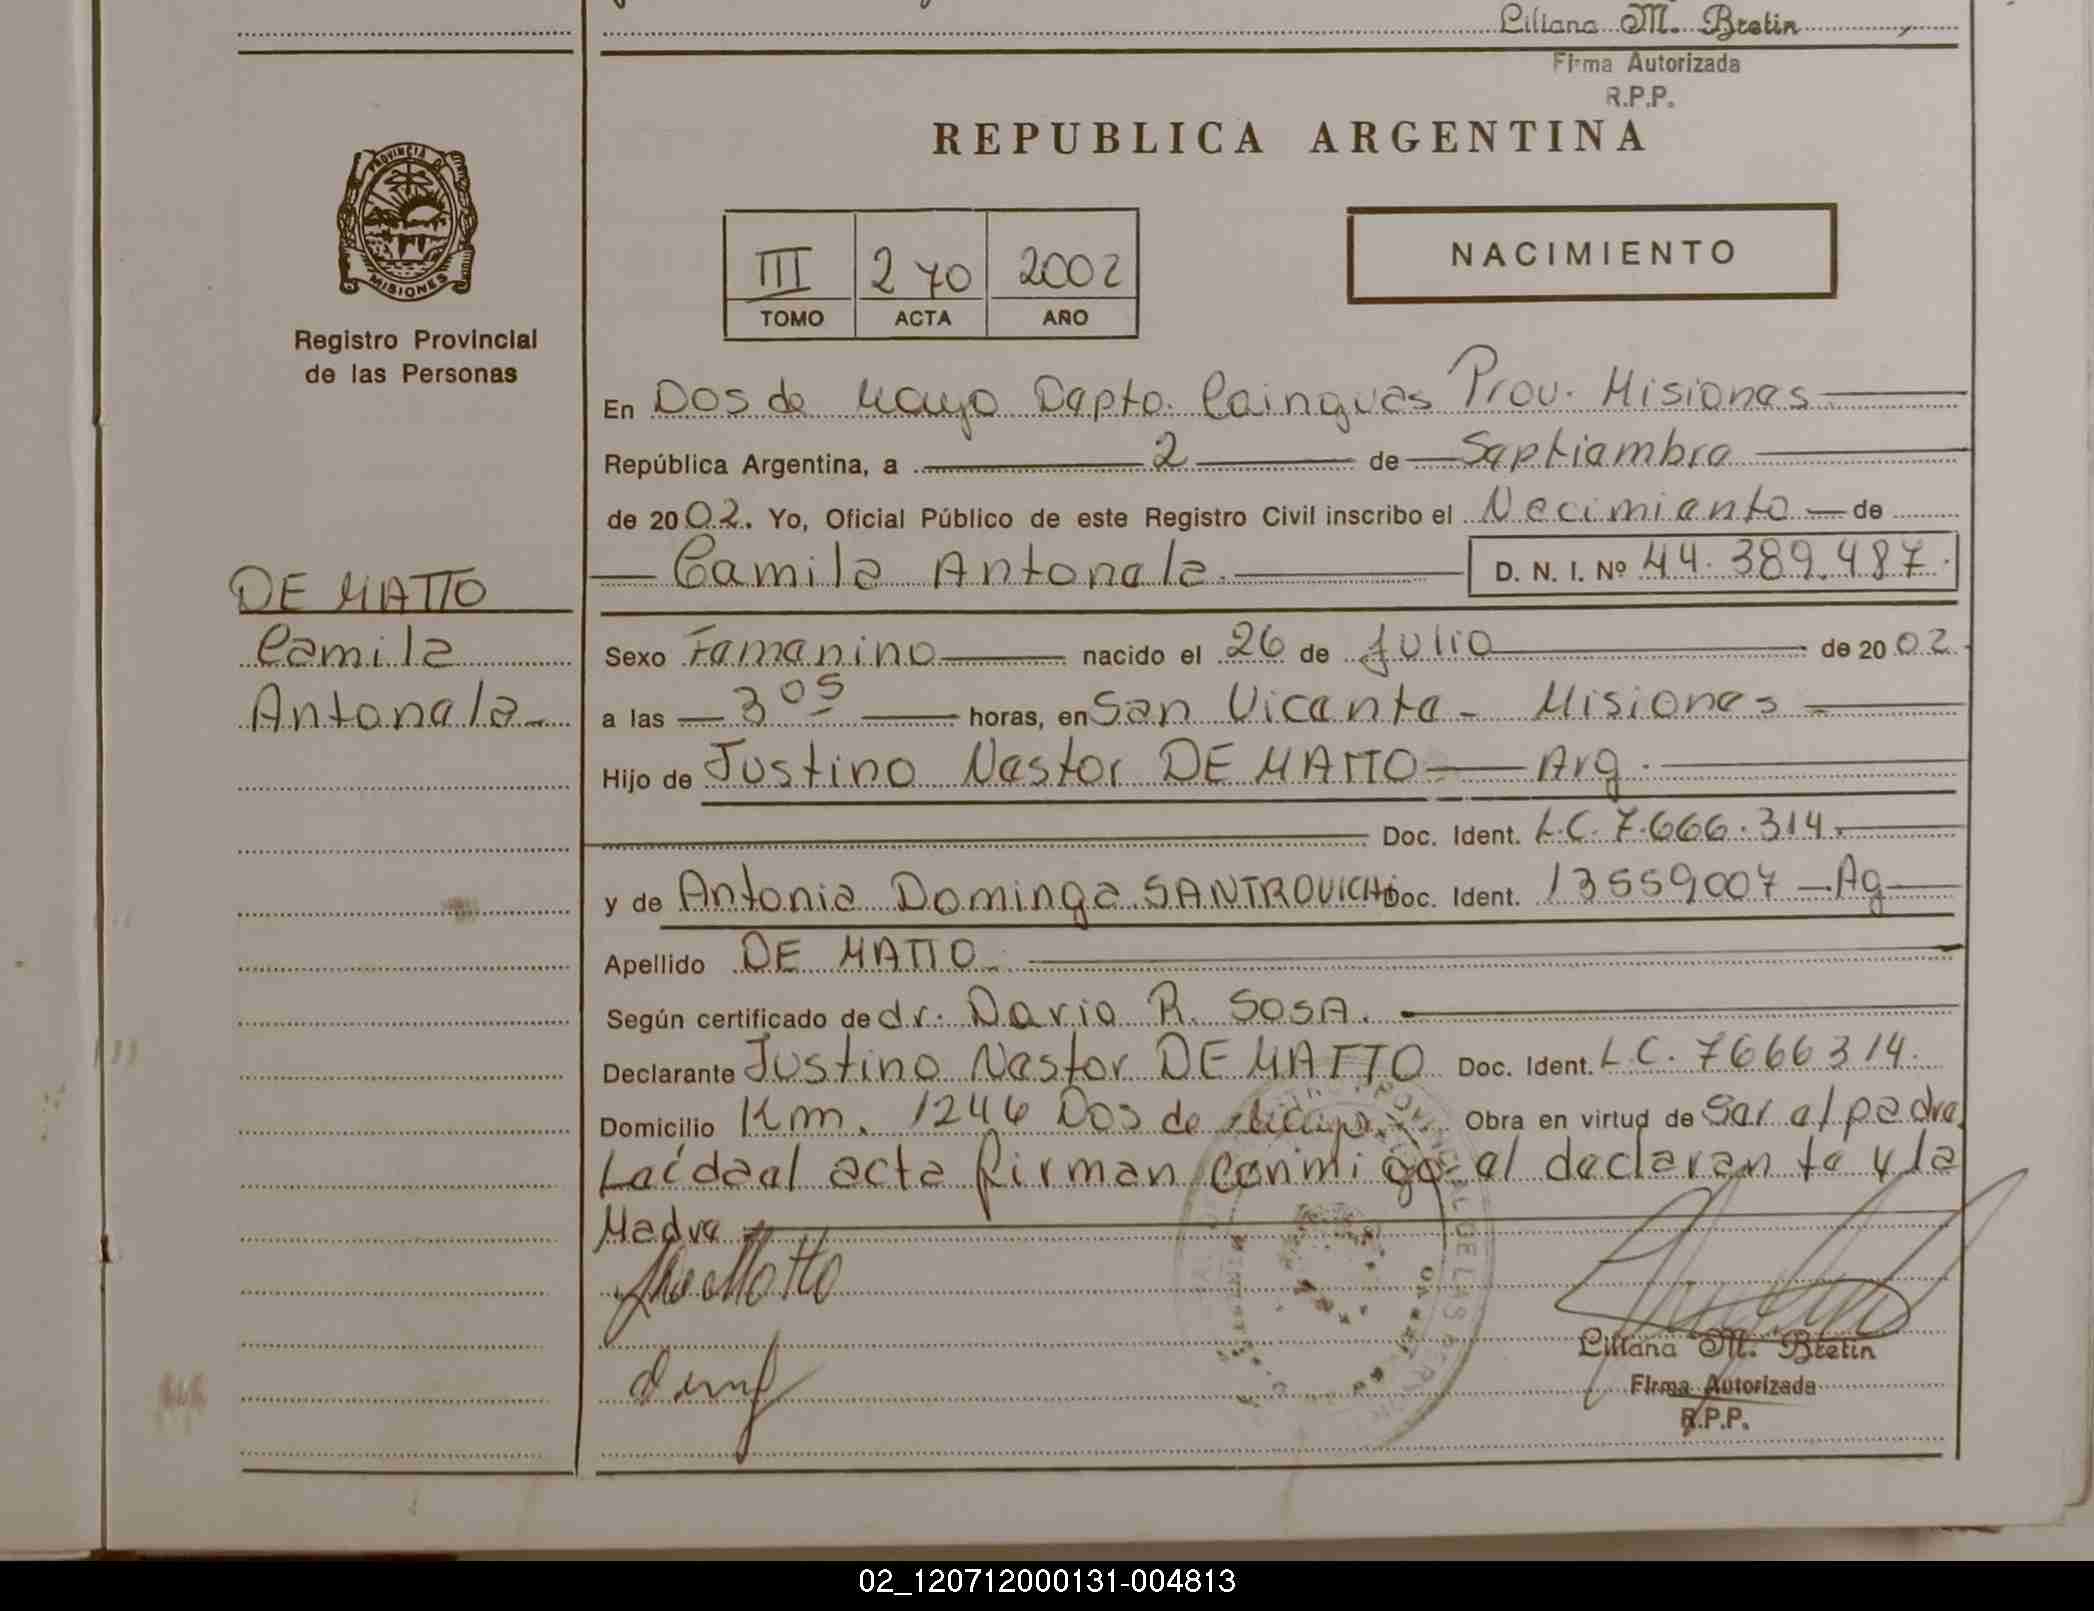 Liliana M. Bretin
Firma Autorizada
R.P.P.
REPUBLICA ARGENTINA
PROVINCIA DE
MISIONES
Registro Provincial
de las Personas
III 270 2002
TOMO ACTA AÑO
NACIMIENTO
En Dos de Mayo Dapto. Cainguas Prov. Misiones
República Argentina, a 2 de Septiembre
de 2002. Yo, Oficial Público de este Registro Civil inscribo el Nacimiento de
Camila Antonela. D. N. I. Nº 44.389.487.
DE MATTO
Camila
Antonela
Sexo Femenino nacido el 26 de Julio de 2002
a las 3 05 horas, en San Vicente - Misiones
Hijo de Justino Nestor DE MATTO Arg.
Doc. Ident. L.C. 7.666.314.
y de Antonia Dominga SANTROVICH Doc. Ident. 13559007 Ag
Apellido DE MATTO
Según certificado de dr. Dario R. SOSA.
Declarante Justino Nestor DE MATTO Doc. Ident. L.C. 7666314.
Domicilio Km. 1246 Dos de Mayo. Obra en virtud de Ser el padre.
Leída el acta firman conmigo el declarante y la
Madre
Liliana M. Bretin
Firma Autorizada
R.P.P.
02_120712000131-004813